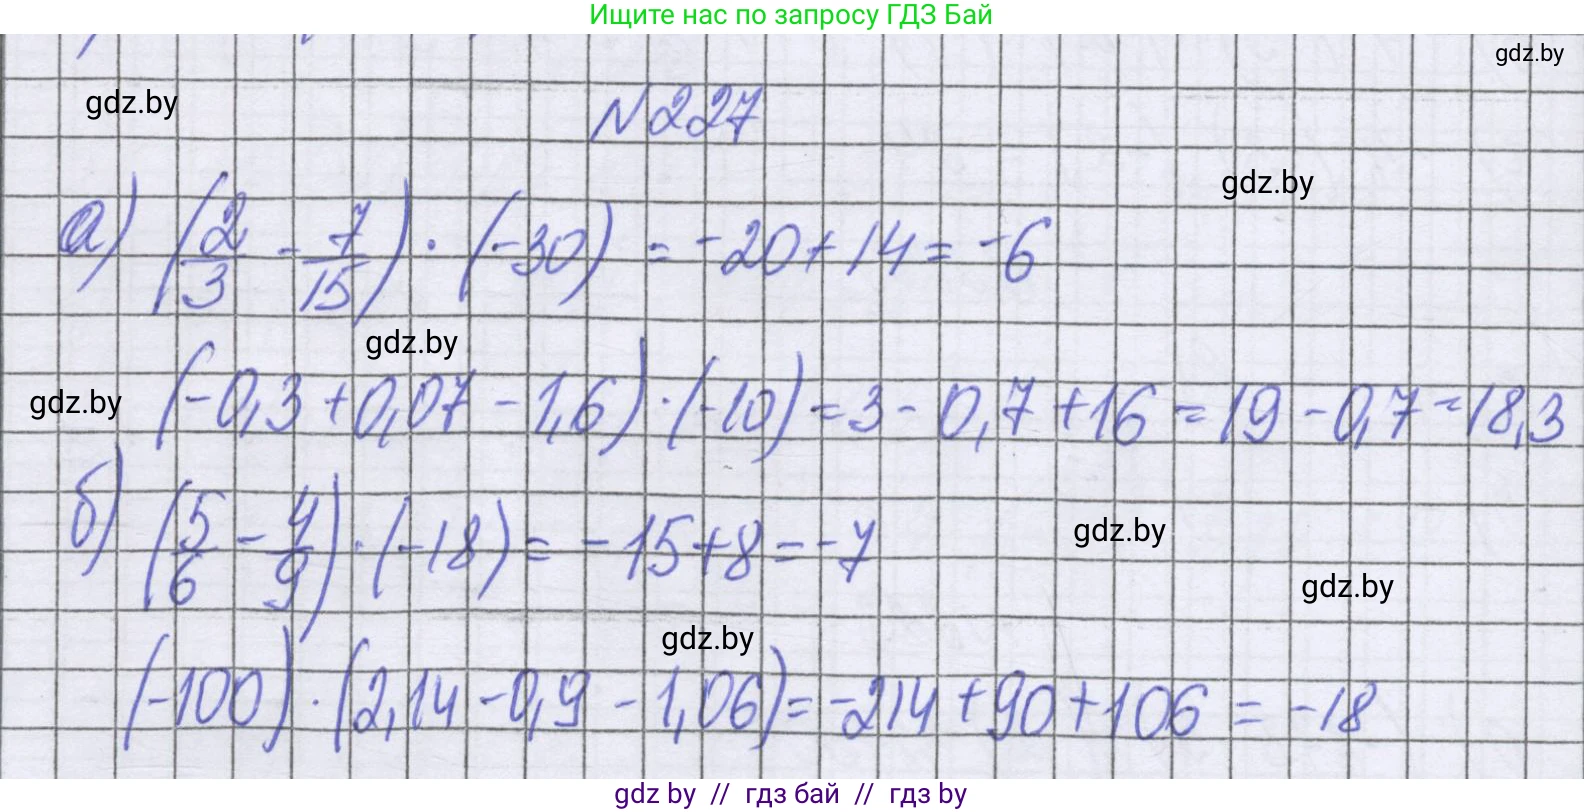 Ищите нас по запросу ГДЗ Бай
gdz.by
gdz.by
№227
gdz.by
а) (2/3 - 7/15) · (-30) = -20 + 14 = -6
gdz.by
gdz.by
(-0,3 + 0,07 - 1,6) · (-10) = 3 - 0,7 + 16 = 19 - 0,7 = 18,3
б) (5/6 - 4/9) · (-18) = -15 + 8 = -7
gdz.by
gdz.by
gdz.by
(-100) · (2,14 - 0,9 - 1,06) = -214 + 90 + 106 = -18
gdz by // гдз бай // гдз by